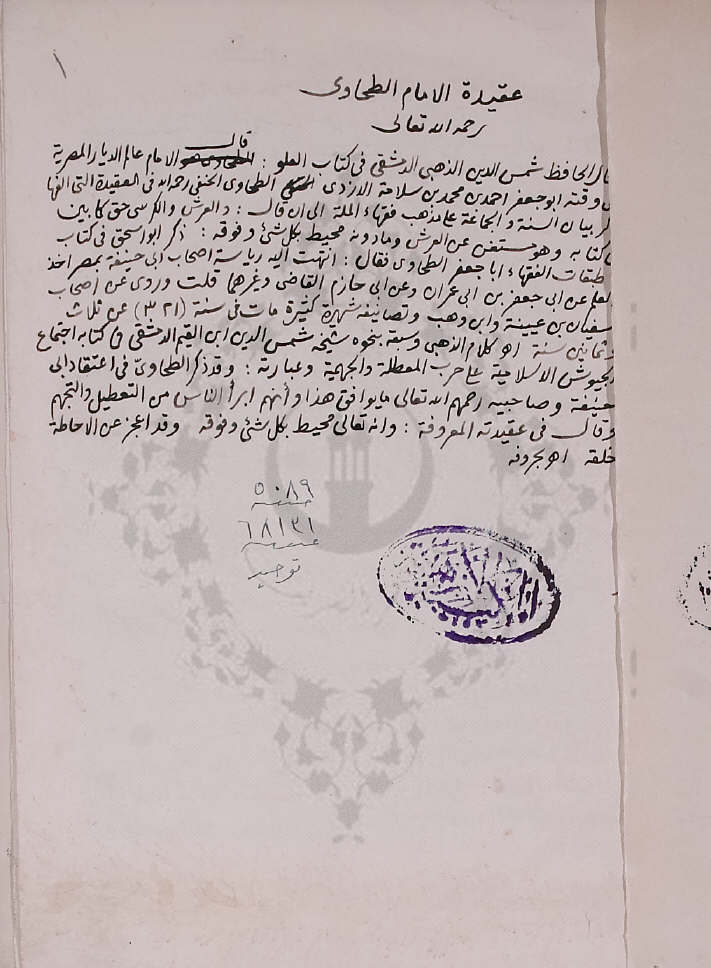 ١
عقيدة الامام الطحاوى
رحمه الله تعالى
قال
قال الحافظ شمس الدين الذهبى الدمشقى فى كتاب العلو : الامام عالم الديار المصرية
وقته ابو جعفر احمد بن محمد بن سلامة الازدى الطحاوى الحنفى رحمه الله فى العقيدة التى الفها
ذكر بيان السنة والجماعة على مذهب فقهاء الملة الى ان قال : والعرش والكرسى حق كما بين
كتابه وهو مستغن عن العرش وما دونه محيط بكل شئ وفوقه : ذكر ابو اسحق فى كتاب
طبقات الفقهاء ابا جعفر الطحاوى فقال : انتهت اليه رياسة اصحاب ابى حنيفة بمصر اخذ
العلم عن ابى جعفر بن ابى عمران وعن ابى حازم القاضى وغيرهما قلت وروى عن اصحاب
سفيان بن عيينة وابن وهب وتصانيفه شهيرة كثيرة مات فى سنة (٣٢١) عن ثلاث
وثمانين سنة اهـ كلام الذهبى وسبقه بنحوه شيخه شمس الدين ابن القيم الدمشقى فى كتابه اجتماع
الجيوش الاسلامية على حرب المعطلة والجهمية وعبارته : وقد ذكر الطحاوى فى اعتقاد ابى
حنيفة وصاحبيه رحمهم الله تعالى ما يوافق هذا وأنهم ابرأ الناس من التعطيل والتجهم
وقال فى عقيدته المعروفة : وانه تعالى محيط بكل شئ وفوقه وقد اعجز عن الاحاطة
خلقه اهـ بحروفه
٥٠٨٩
٦٨١٣١
توحيد